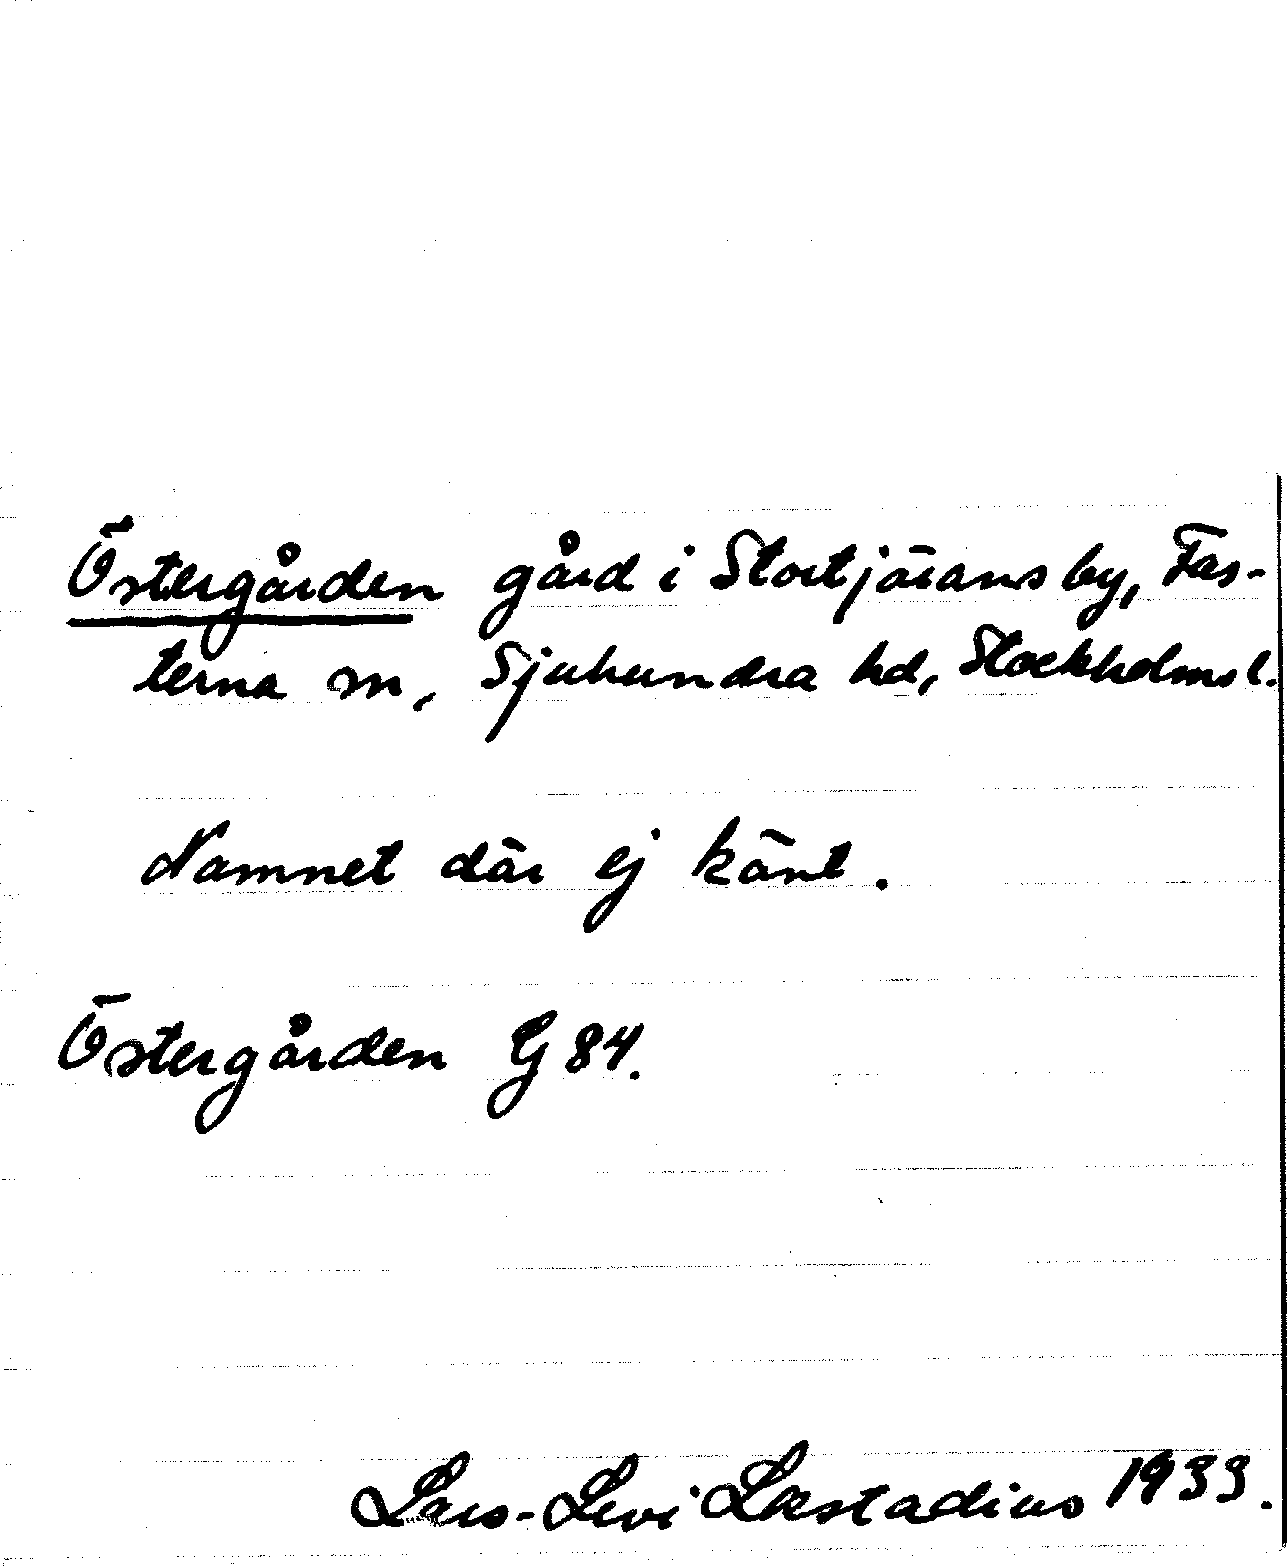 Östergården gård i Stortjärans by, Fas-
terna sn, Sjuhundra hd, Stockholms l.
Namnet där ej känt.
Östergården G 84.
Lars-Levi Læstadius 1933.